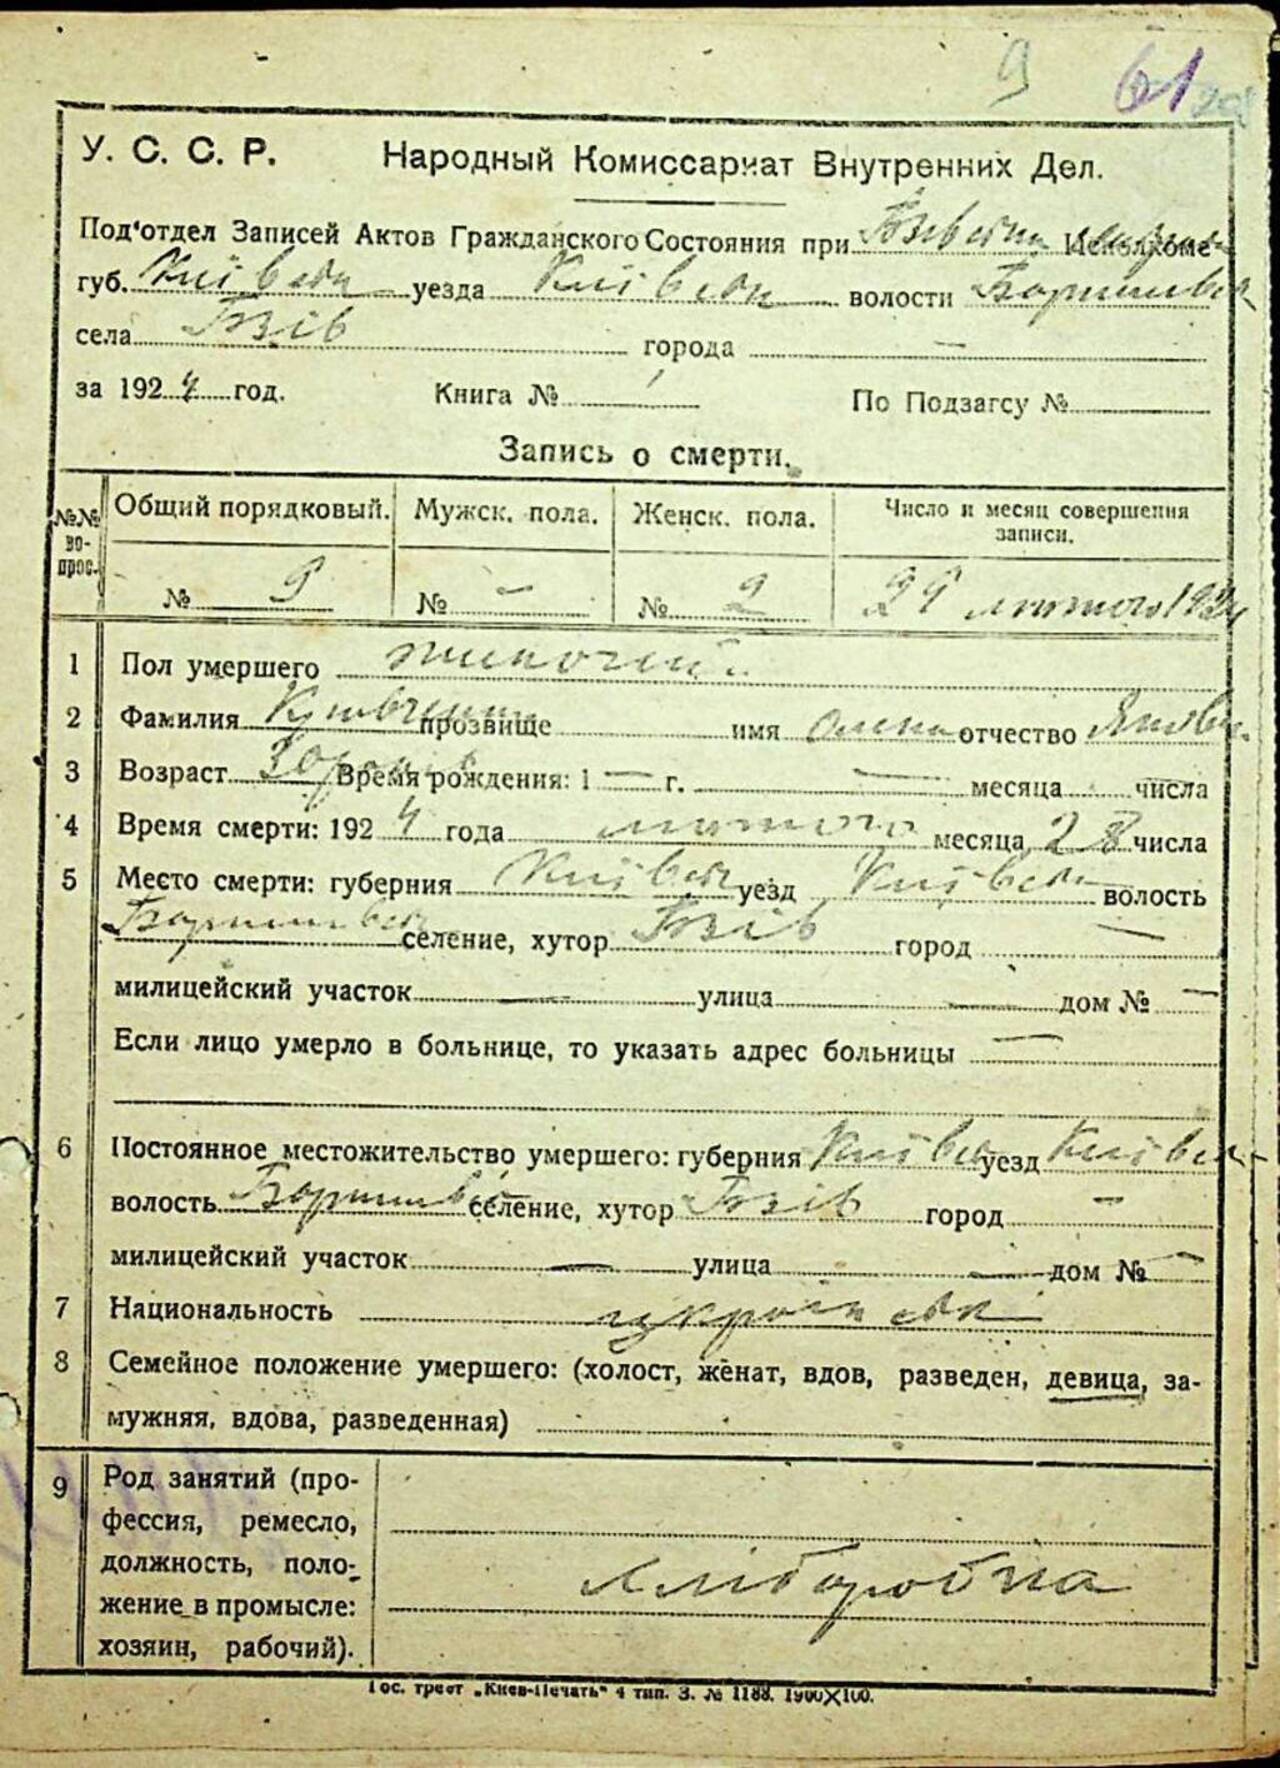 9 61
У. С. С. Р. Народный Комиссариат Внутренних Дел.
Под'отдел Записей Актов Гражданского Состояния при Исполкоме
губ. Київськ уезда Київськ волости
села Бзів города —
за 1924 год. Книга № 1 По Подзагсу №
Запись о смерти.
№№ вопрос. Общий порядковый. Мужск. пола. Женск. пола. Число и месяц совершения записи.
№ 9 № — № 2 29 лютого 1924
1 Пол умершего жиночий
2 Фамилия прозвище имя Олена отчество
3 Возраст Время рождения: 1 — г. — месяца числа
4 Время смерти: 1924 года лютого месяца 28 числа
5 Место смерти: губерния Київськ уезд Київськ волость
селение, хутор Бзів город —
милицейский участок — улица — дом № —
Если лицо умерло в больнице, то указать адрес больницы —
6 Постоянное местожительство умершего: губерния Київськ уезд Київськ
волость селение, хутор Бзів город —
милицейский участок — улица — дом № —
7 Национальность
8 Семейное положение умершего: (холост, женат, вдов, разведен, девица, за-
мужняя, вдова, разведенная)
9 Род занятий (про-
фессия, ремесло,
должность, поло-
жение в промысле:
хозяин, рабочий). хліборобка
Гос. трест „Киев-Печать" 4 тип. З. № 1188. 1900X100.